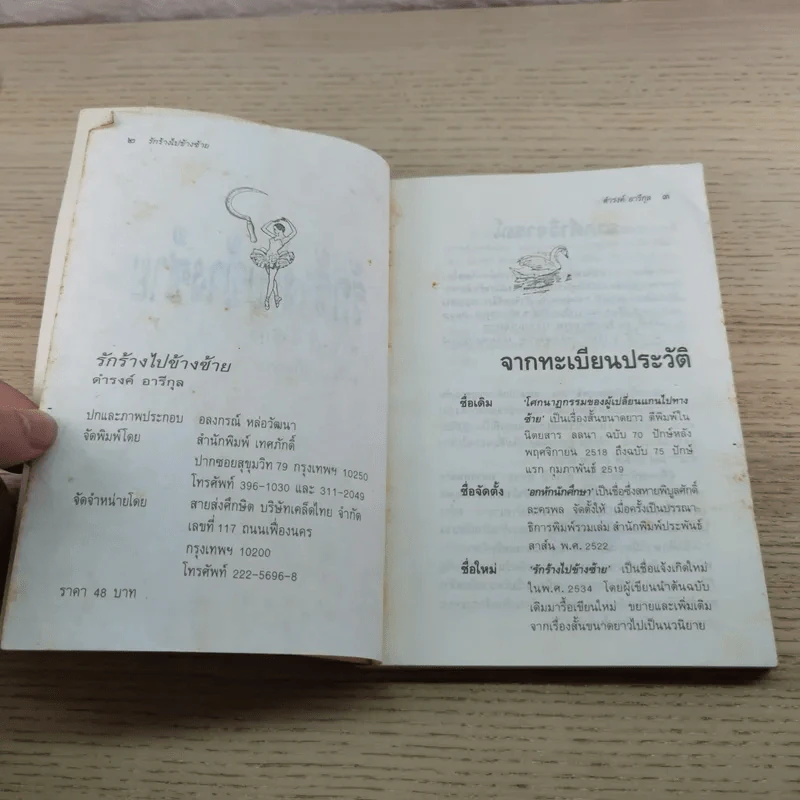 ๒ รักร้างไปข้างซ้าย
รักร้างไปข้างซ้าย
ดำรงค์ อารีกุล
ปกและภาพประกอบ อลงกรณ์ หล่อวัฒนา
จัดพิมพ์โดย สำนักพิมพ์ เทศภักดิ์
ปากซอยสุขุมวิท 79 กรุงเทพฯ 10250
โทรศัพท์ 396-1030 และ 311-2049
จัดจำหน่ายโดย สายส่งศึกษิต บริษัทเคล็ดไทย จำกัด
เลขที่ 117 ถนนเฟื่องนคร
กรุงเทพฯ 10200
โทรศัพท์ 222-5696-8
ราคา 48 บาท
ดำรงค์ อารีกุล ๓
จากทะเบียนประวัติ
ชื่อเดิม 'โศกนาฏกรรมของผู้เปลี่ยนแกนไปทาง
ซ้าย' เป็นเรื่องสั้นขนาดยาว ตีพิมพ์ใน
นิตยสาร ลลนา ฉบับ 70 ปักษ์หลัง
พฤศจิกายน 2518 ถึงฉบับ 75 ปักษ์
แรก กุมภาพันธ์ 2519
ชื่อจัดตั้ง 'อกหักนักศึกษา' เป็นชื่อซึ่งสหายพิบูลศักดิ์
ละครพล จัดตั้งให้ เมื่อครั้งเป็นบรรณา
ธิการพิมพ์รวมเล่ม สำนักพิมพ์ประพันธ์
สาส์น พ.ศ. 2522
ชื่อใหม่ 'รักร้างไปข้างซ้าย' เป็นชื่อแจ้งเกิดใหม่
ในพ.ศ. 2534 โดยผู้เขียนนำต้นฉบับ
เดิมมารื้อเขียนใหม่ ขยายและเพิ่มเติม
จากเรื่องสั้นขนาดยาวไปเป็นนวนิยาย